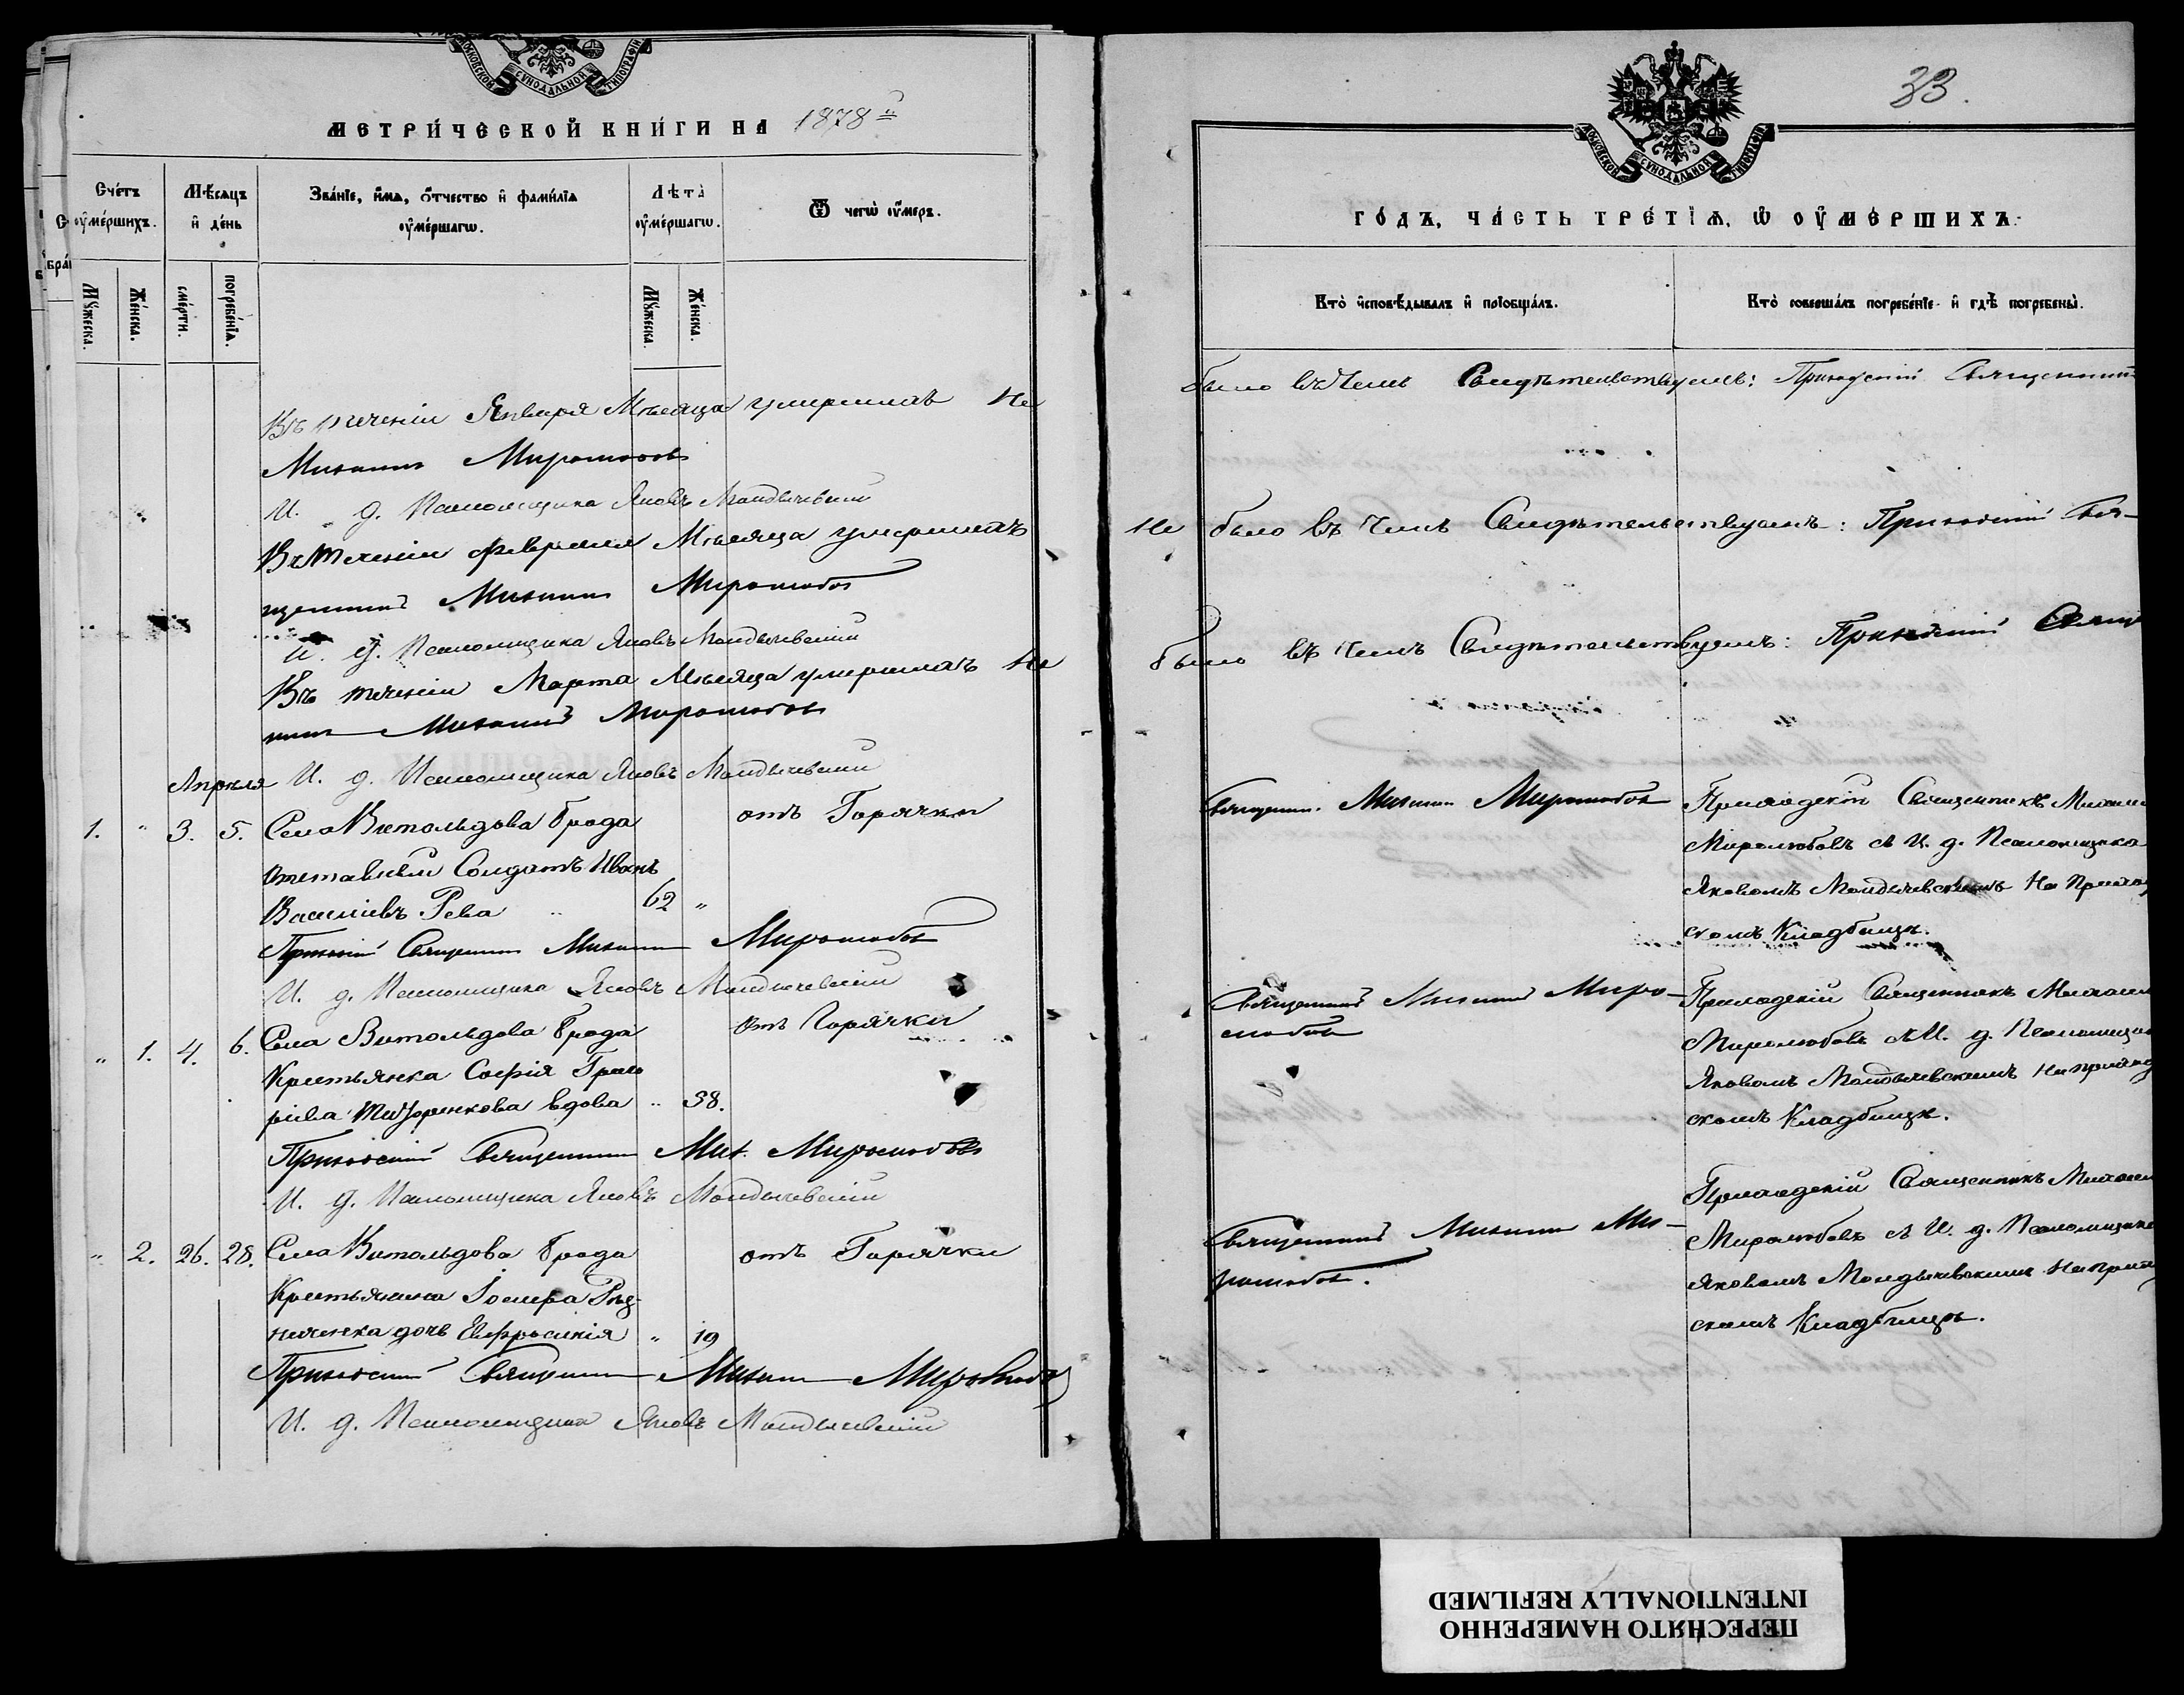 МОСКОВСКОЙ СѴНОДАЛЬНОЙ ТИПОГРАФІИ
МЕТРИ́ЧЕСКОЙ КНИ́ГИ НА 1878й
Сче́тъ оу҆ме́ршихъ.
Мѣ́сяцъ и҆ де́нь
Зва́нїе, и҆́мѧ, ѻ҆́тчество и҆ фами́лїѧ оу҆ме́ршагѡ.
Лѣ́та оу҆ме́ршагѡ.
Ѿ чегѡ̀ оу҆́меръ.
Мꙋ́жеска.
Же́нска.
сме́рти.
погребе́нїѧ.
Мꙋ́жеска.
Же́нска.
Въ теченіи Января Мѣсяца умершихъ Не
Михаилъ Миролюбовъ
И. д. Псаломщика Яковъ Молдычевскій
Въ теченіи Февраля Мѣсяца умершихъ
щенникъ Михаилъ Миролюбовъ
И. д. Псаломщика Яковъ Молдычевскій
Въ теченіи Марта Мѣсяца умершихъ Не
никъ Михаилъ Миролюбовъ
И. д. Псаломщика Яковъ Молдычевскій
Апрѣля
1. " 3. 5. Села Витольдова Брода отъ Горячки
отставный Солдатъ Иванъ
Василіевъ Рева 62 "
Приходскій Священникъ Михаилъ Миролюбовъ
И. д. Псаломщика Яковъ Молдычевскій
" 1. 4. 6. Села Витольдова Брода отъ Горячки
Крестьянка Софія Григо
ріева вдова " 38.
Приходскій Священникъ Мих. Миролюбовъ
И. д. Псаломщика Яковъ Молдычевскій
" 2. 26. 28. Села Витольдова Брода отъ Горячки
Крестьянина Іосифа
дочь Евфросинія " 19
Приходскій Священникъ Михаилъ Миролюбовъ
И. д. Псаломщика Яковъ Молдычевскій
33.
МОСКОВСКОЙ СѴНОДАЛЬНОЙ ТИПОГРАФІИ
ГО́ДЪ, ЧА́СТЬ ТРЕ́ТЇѦ, Ѡ҆ ОУ҆МЕ́РШИХЪ.
Кто̀ и҆сповѣ́дывалъ и҆ прїобща́лъ.
Кто̀ соверша́лъ погребе́нїе и҆ гдѣ̀ погребены̀.
было въ чемъ Свидѣтельствуемъ: Приходскій Священникъ
Не было въ чемъ Свидѣтельствуемъ: Приходскій Свя-
было въ чемъ Свидѣтельствуемъ: Приходскій Свящ
Священникъ Михаилъ Миролюбовъ
Приходскій Священникъ Михаилъ
Миролюбовъ съ И. д. Псаломщика
Яковомъ Молдычевскимъ На Приход
скомъ Кладбищѣ.
Священникъ Михаилъ Миро-
любовъ
Приходскій Священникъ Михаилъ
Миролюбовъ съ И. д. Псаломщика
Яковомъ Молдычевскимъ На приход
скомъ Кладбищѣ.
Священникъ Михаилъ Ми-
ролюбовъ.
Приходскій Священникъ Михаилъ
Миролюбовъ съ И. д. Псаломщика
Яковомъ Молдычевскимъ На приход
скомъ Кладбищѣ.
ПЕРЕСНЯТО НАМЕРЕННО
INTENTIONALLY REFILMED